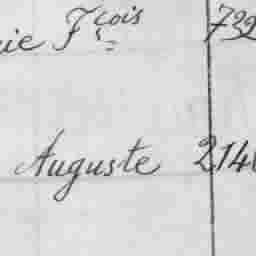 rie Fçois 732
Auguste 214